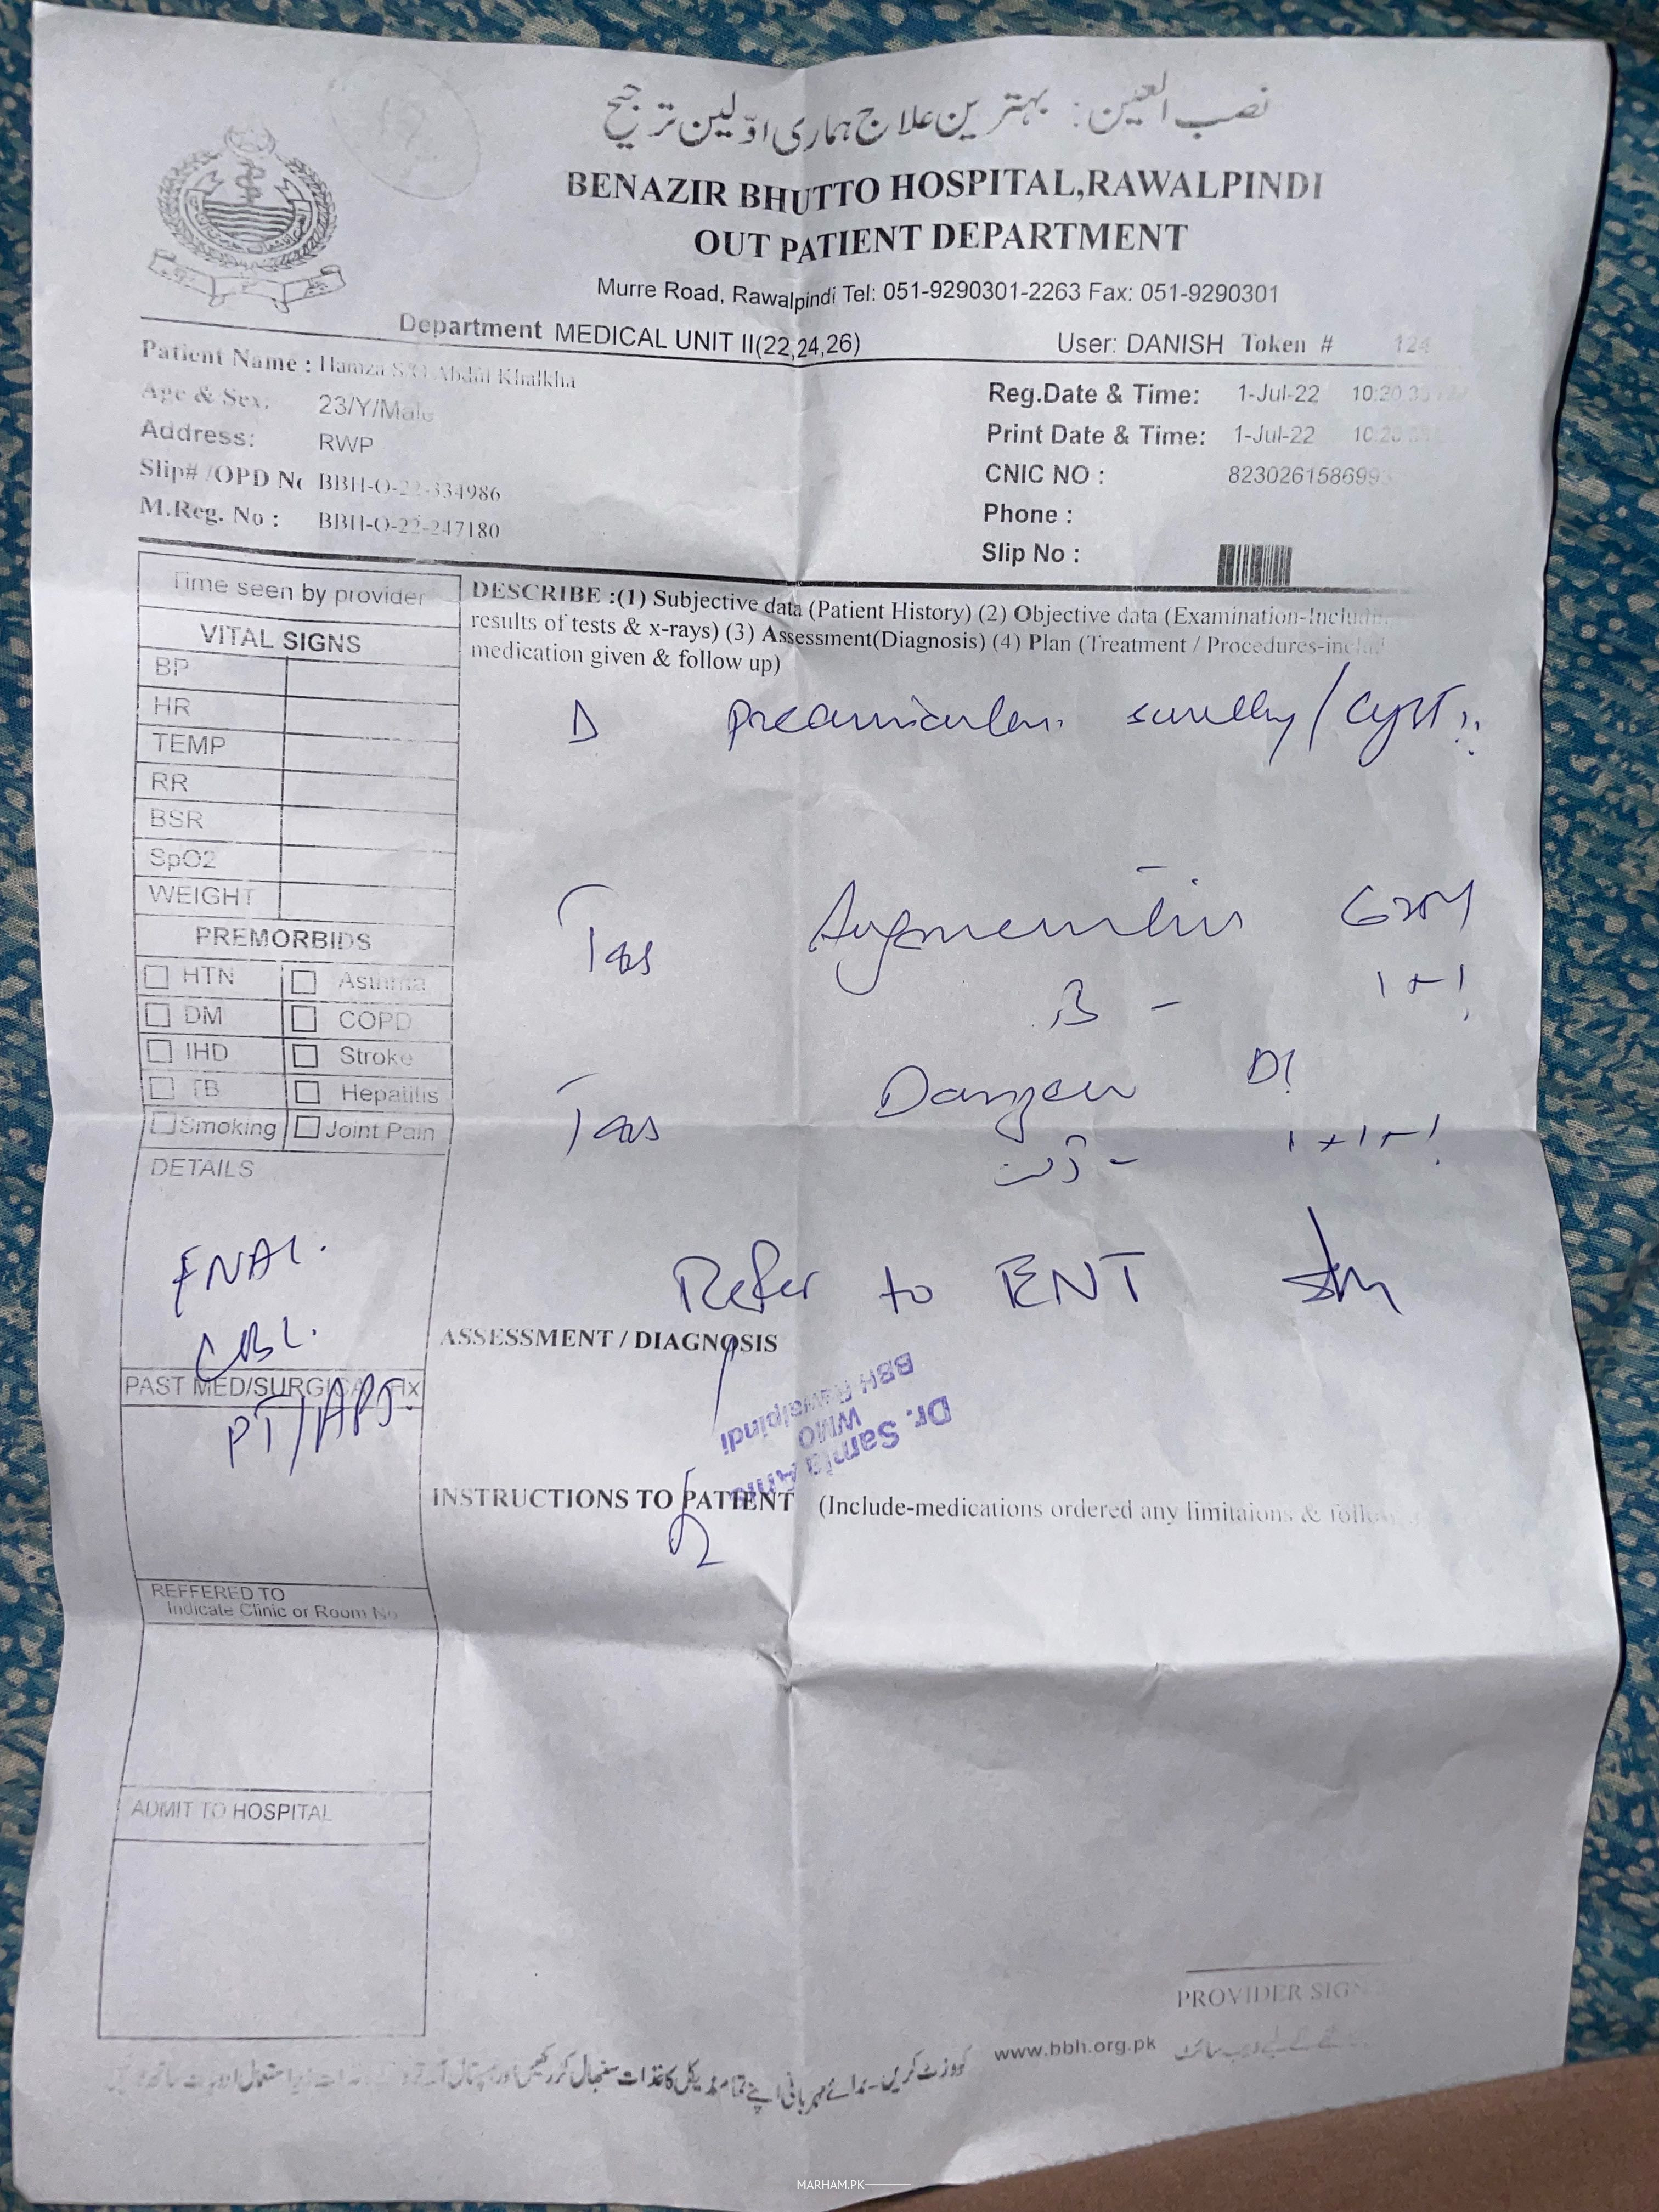 نصب العین: بہترین علاج ہماری اوّلین ترجیح
BENAZIR BHUTTO HOSPITAL,RAWALPINDI
OUT PATIENT DEPARTMENT
Murre Road, Rawalpindi Tel: 051-9290301-2263 Fax: 051-9290301
Department MEDICAL UNIT II(22,24,26) User: DANISH Token # 124
Patient Name : Hamza S/O Abdul Khalkha
Age & Sex: 23/Y/Male
Address: RWP
Slip# /OPD No BBH-O-22-334986
M.Reg. No : BBH-O-22-247180
Reg.Date & Time: 1-Jul-22 10:20
Print Date & Time: 1-Jul-22 10:20
CNIC NO : 8230261586993
Phone :
Slip No :
Time seen by provider
VITAL SIGNS
BP
HR
TEMP
RR
BSR
SpO2
WEIGHT
PREMORBIDS
HTN Asthma
DM COPD
IHD Stroke
TB Hepatitis
Smoking Joint Pain
DETAILS
FNAC.
CBC.
PAST MED/SURGICAL Hx
PT/APT
REFFERED TO
Indicate Clinic or Room No
ADMIT TO HOSPITAL
DESCRIBE :(1) Subjective data (Patient History) (2) Objective data (Examination-Includin
results of tests & x-rays) (3) Assessment(Diagnosis) (4) Plan (Treatment / Procedures-includ
medication given & follow up)
preauricular swelling / Cyst
Tab Augmentin
1+1
Tab Danzen DS
1+1+1
Refer to ENT
ASSESSMENT / DIAGNOSIS
Dr. Samia
WMO
BBH Rawalpindi
INSTRUCTIONS TO PATIENT (Include-medications ordered any limitaions & follo
PROVIDER SIGN
www.bbh.org.pk
MARHAM.PK